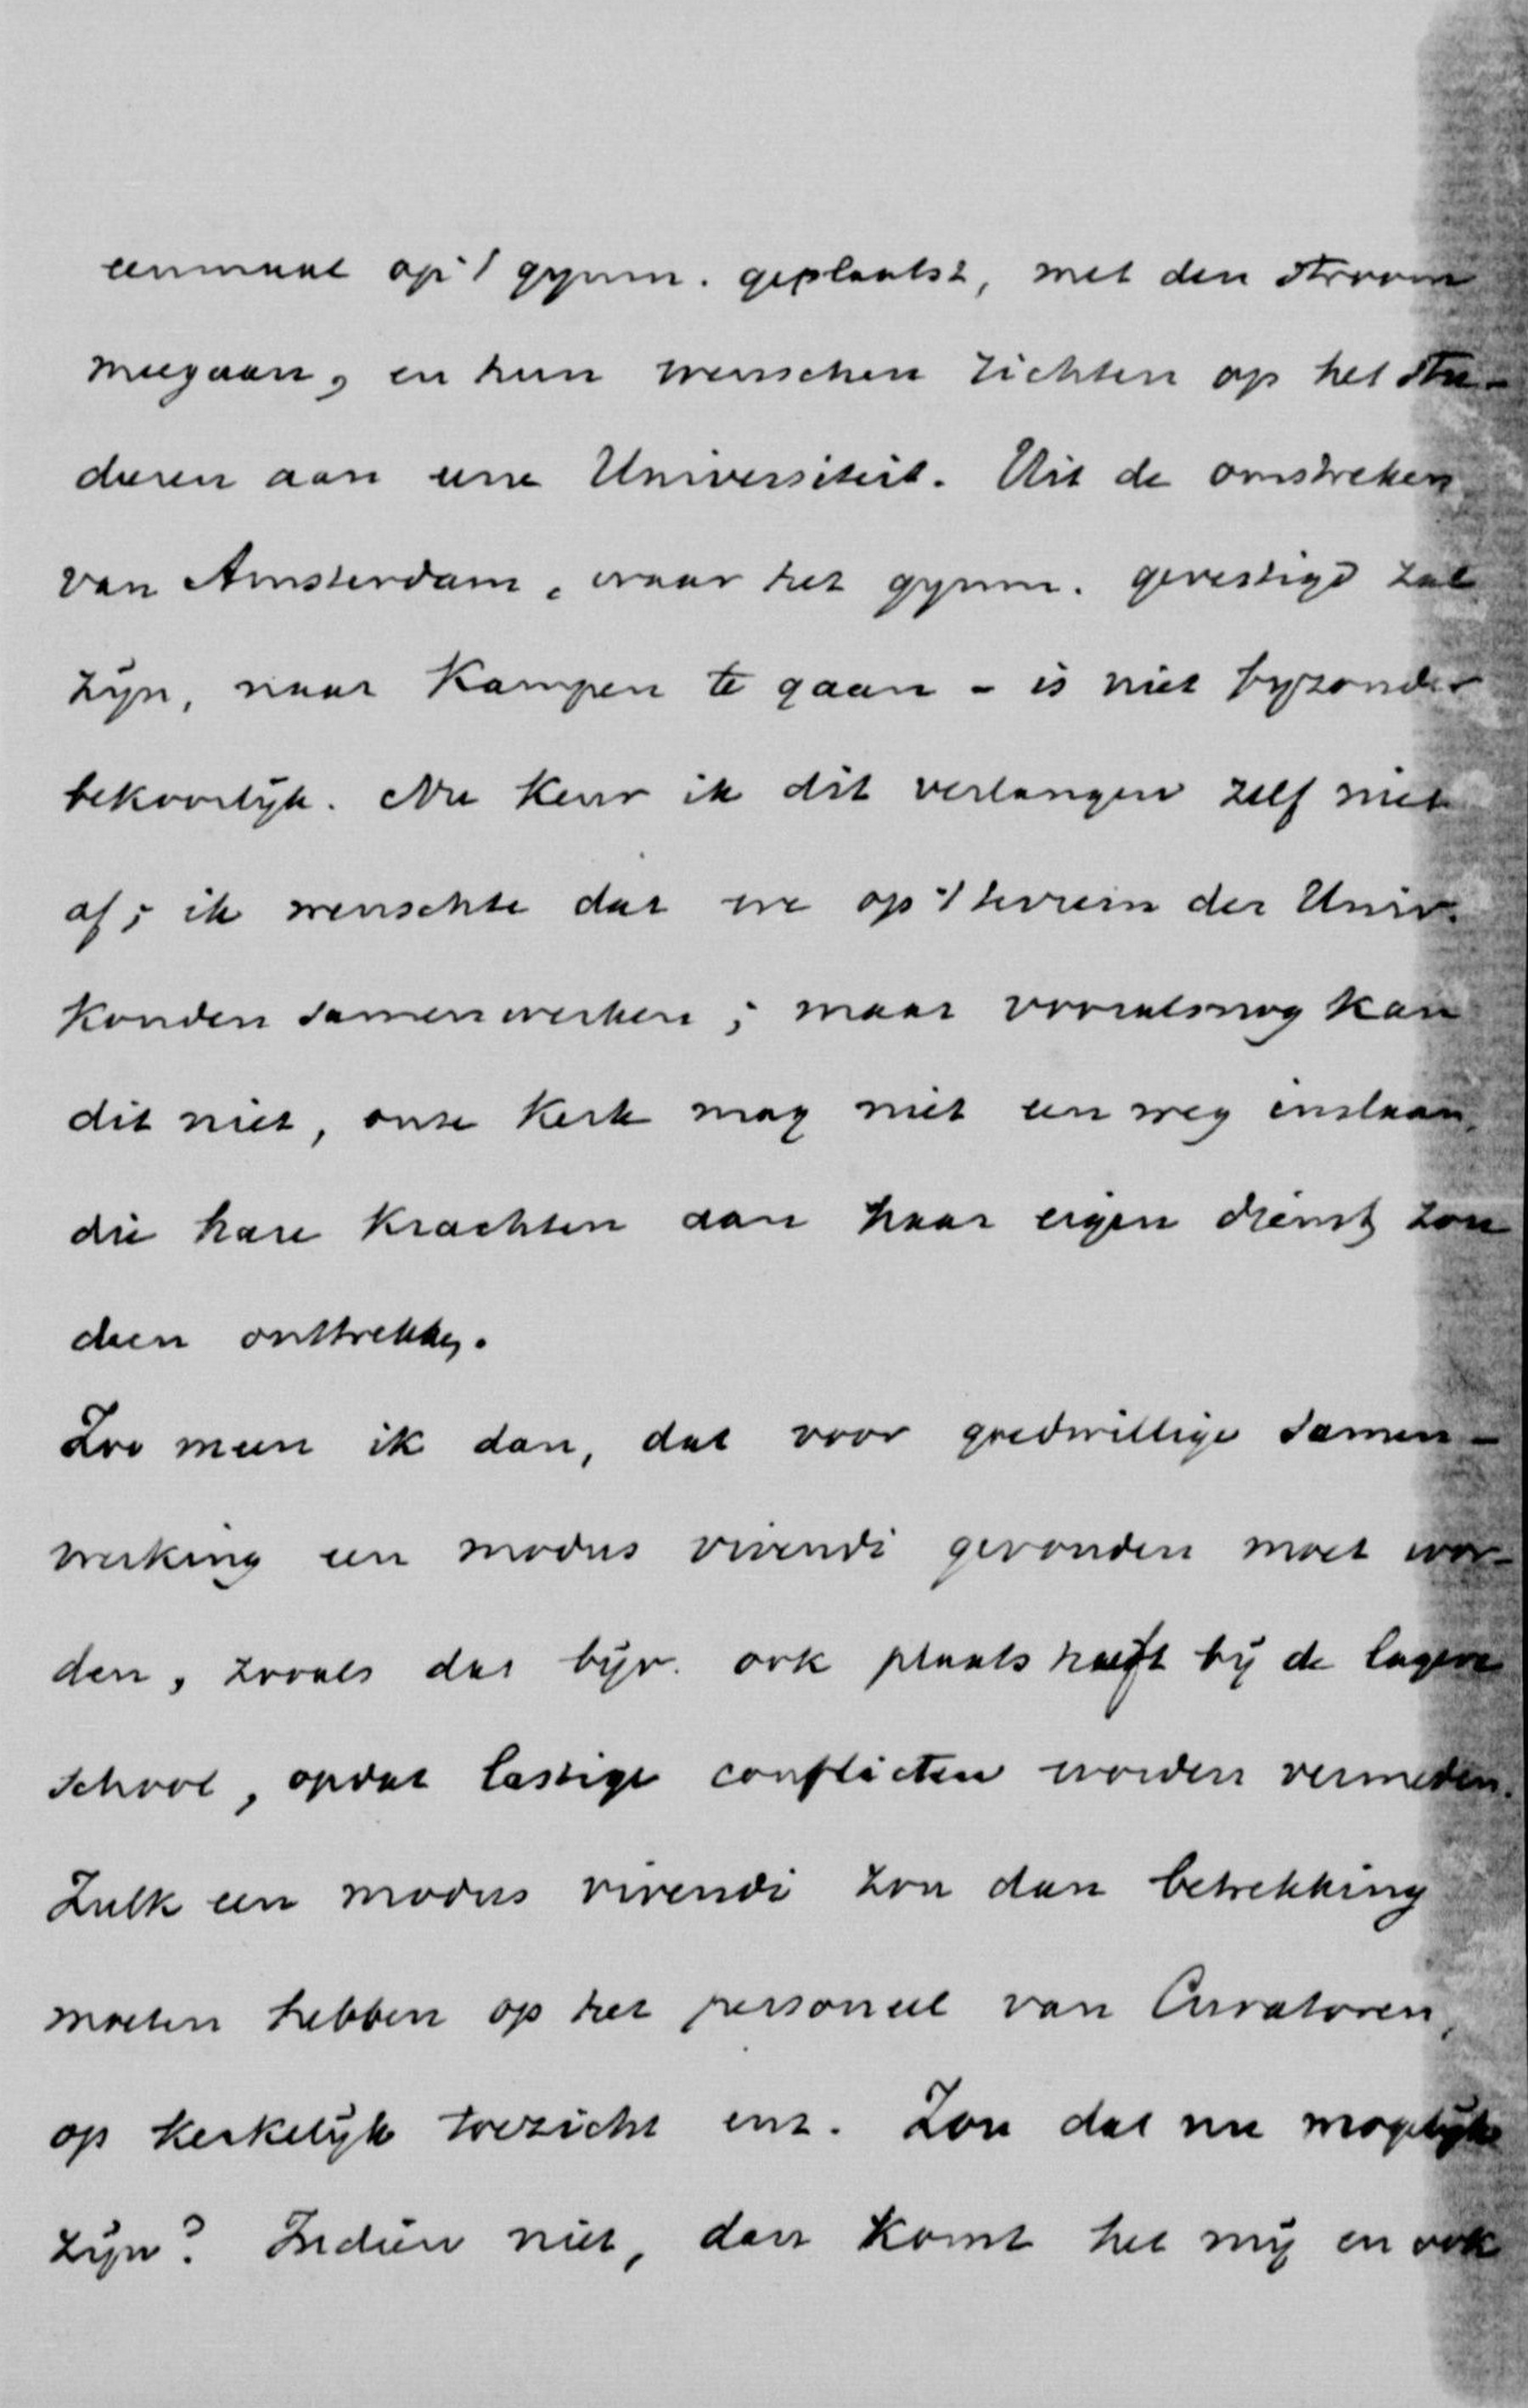 eenmaal op 't gymn. geplaatst, met den stroom
meegaan, en hun wenschen richten op het stu-
deeren aan eene Universiteit. Uit de omstreken
van Amsterdam, waar het gymn. gevestigd zal
zijn, naar Kampen te gaan - is niet byzonder
bekoorlijk. Nu keur ik dit verlangen zelf niet
af; ik wenschte dat we op 't terrein der Univ.
konden samenwerken; maar vooralsnog kan
dit niet, onze Kerk mag niet een weg inslaan,
die hare krachten aan haar eigen dienst zou
doen onttrekken.
Zoo meen ik dan, dat voor goedwillige samen-
werking een modus vivendi gevonden moet wor-
den, zooals dat bijv. ook plaats heeft bij de lagere
school, opdat lastige conflicten worden vermeden.
Zulk een modus vivendi zou dan betrekking
moeten hebben op het personeel van Curatoren,
op kerkelijk toezicht enz. Zou dat nu mogelijk
zijn? Indien niet, dan komt het mij en ook